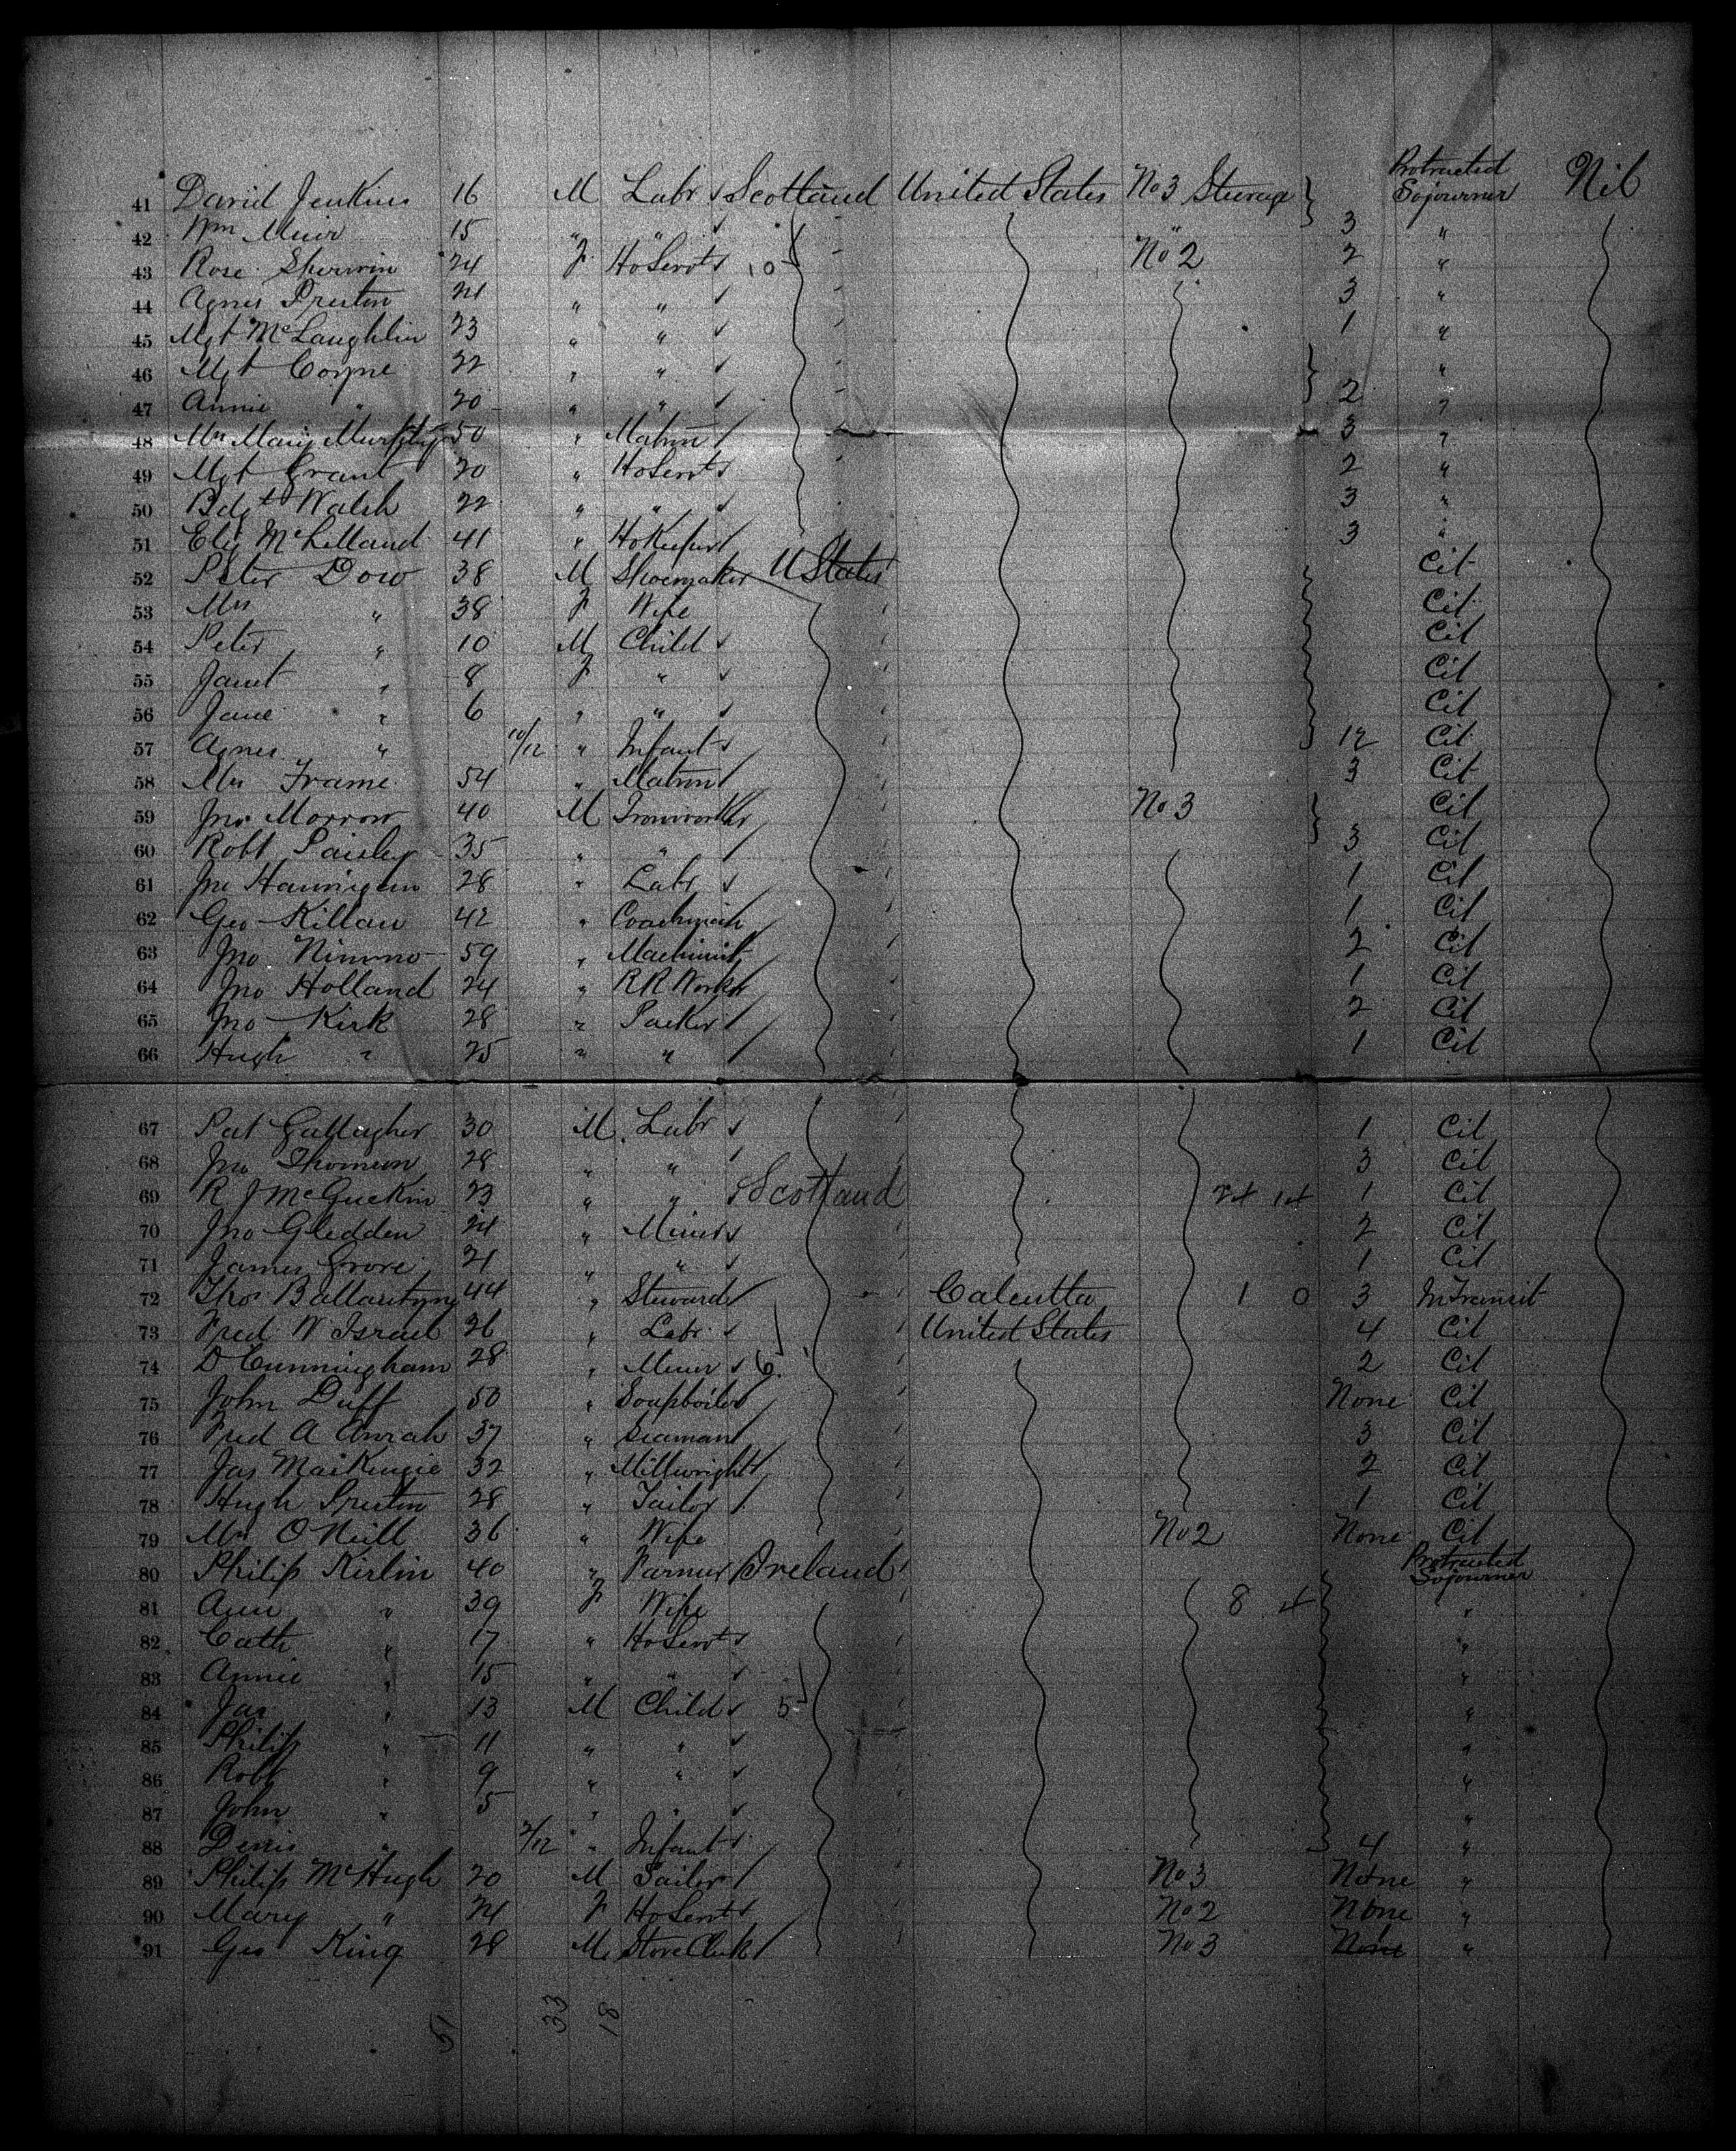 41 David Jenkins 16 M Labr Scotland United States No 3 Sterage Protracted Sojourner Nil
42 Wm Muir 15 " " " 3 "
43 Rose Sherwin 24 F HoServt 10 No 2 2 "
44 Agnes Preston 21 " " 3 "
45 Mgt McLaughlin 23 " " 1 "
46 Mgt Coyne 22 " " "
47 Annie " 20 " " 2 "
48 Mrs Mary Murphy 50 " Matron 3 "
49 Mgt Grant 20 " HoServt 2 "
50 Bdgt Walsh 22 " " 3 "
51 Eliz McLelland 41 " HoKeeper 3 "
52 Peter Dow 38 M Shoemaker U States Cit
53 Mrs " 38 F Wife Cit
54 Peter " 10 M Child Cit
55 Janet " 8 F " Cit
56 Jane " 6 " " Cit
57 Agnes " 10/12 " Infant 12 Cit
58 Mrs Frame 54 " Matron 3 Cit
59 Jno Morrow 40 M Ironworker No 3 Cit
60 Robt Paisley 35 " " 3 Cit
61 Jno Hannigan 28 " Labr 1 Cit
62 Geo Killan 42 " 1 Cit
63 Jno Nimmo 59 " Machinist 2 Cit
64 Jno Holland 24 " RR Workr 1 Cit
65 Jno Kirk 28 " Packer 2 Cit
66 Hugh " 25 " " 1 Cit
67 Pat Gallagher 30 M Labr 1 Cit
68 Jno Thomson 28 " " 3 Cit
69 R J McGuckin 23 " " Scotland 1 Cit
70 Jno Gledden 21 " Miner 2 Cit
71 James Grove 21 " " 1 Cit
72 Thos Ballantyne 44 " Steward Calcutta 1 0 3 In Transit
73 Fred W Israel 26 " Labr United States 4 Cit
74 D Cunningham 28 " Miner 6 2 Cit
75 John Duff 50 " Soapboiler None Cit
76 Fred A 37 " Seaman 3 Cit
77 Jas MacKenzie 32 " Millwright 2 Cit
78 Hugh Preston 28 " Tailor 1 Cit
79 Mrs O'Neill 36 " Wife No 2 None Cit
80 Philip Kirlin 40 " Farmer Ireland Protracted Sojourner
81 Ann " 39 F Wife 8 "
82 Cath " 17 " HoServt "
83 Annie " 15 " " "
84 Jas " 13 M Child 5 "
85 Philip " 11 " " "
86 Robt " 9 " " "
87 John " 5 " " "
88 Denis " 2/12 " Infant 4 "
89 Philip McHugh 20 M Tailor No 3 None "
90 Mary " 24 F HoServt No 2 None "
91 Geo King 28 M Store Clerk No 3 None "
51 33 18